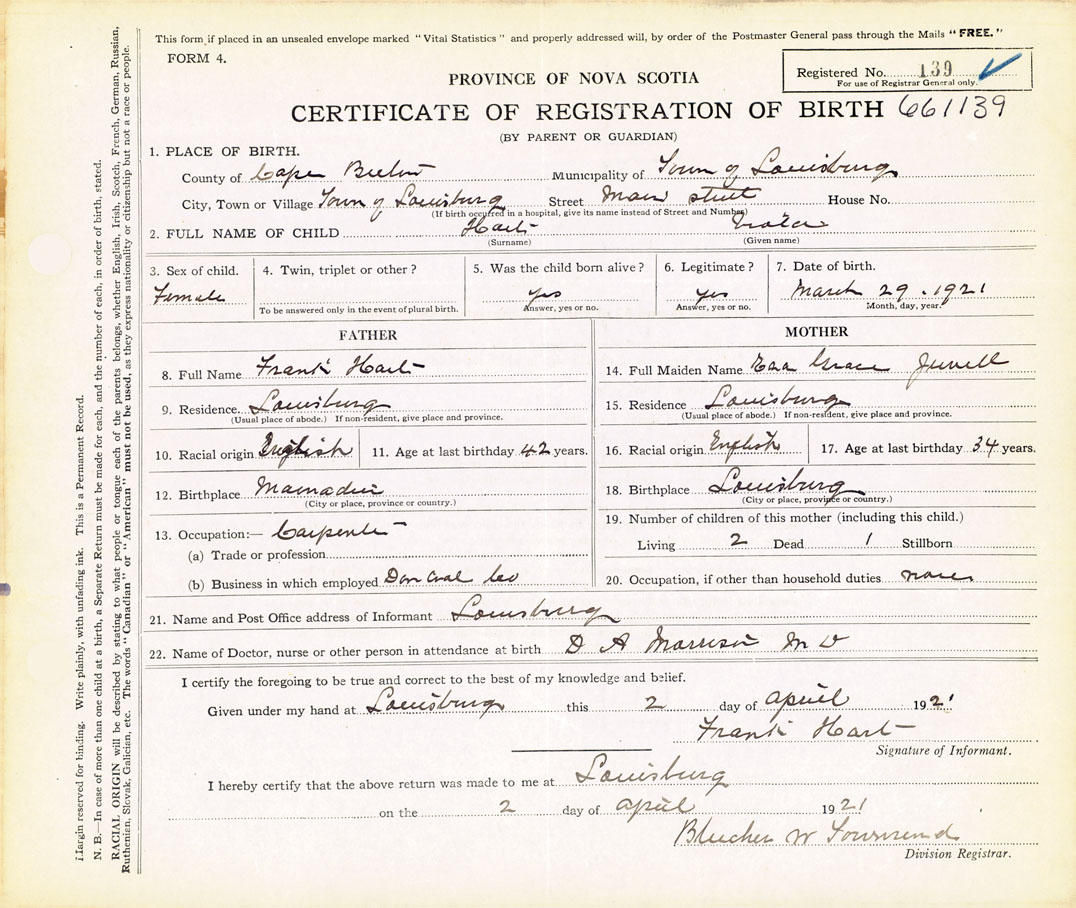 This form if placed in an unsealed envelope marked "Vital Statistics" and properly addressed will, by order of the Postmaster General pass through the Mails "FREE."
FORM 4.
Registered No. 139
For use of Registrar General only.
PROVINCE OF NOVA SCOTIA
CERTIFICATE OF REGISTRATION OF BIRTH 661139
(BY PARENT OR GUARDIAN)
1. PLACE OF BIRTH.
County of Cape Breton Municipality of Town of Louisburg
City, Town or Village Town of Louisburg Street Main street House No.
(If birth occurred in a hospital, give its name instead of Street and Number)
2. FULL NAME OF CHILD Hart
(Surname) (Given name)
3. Sex of child. 4. Twin, triplet or other? 5. Was the child born alive? 6. Legitimate? 7. Date of birth.
Female yes yes March 29. 1921
To be answered only in the event of plural birth. Answer, yes or no. Answer, yes or no. Month, day, year.
FATHER
8. Full Name Frank Hart
9. Residence. Louisburg
(Usual place of abode.) If non-resident, give place and province.
10. Racial origin English 11. Age at last birthday 42 years.
12. Birthplace
(City or place, province or country.)
13. Occupation:— Carpenter
(a) Trade or profession
(b) Business in which employed Dom Coal Co
MOTHER
14. Full Maiden Name Grace Jewell
15. Residence Louisburg
(Usual place of abode.) If non-resident, give place and province.
16. Racial origin English 17. Age at last birthday 34 years.
18. Birthplace Louisburg
(City or place, province or country.)
19. Number of children of this mother (including this child.)
Living 2 Dead 1 Stillborn
20. Occupation, if other than household duties none
21. Name and Post Office address of Informant Louisburg
22. Name of Doctor, nurse or other person in attendance at birth D A Morrison M D
I certify the foregoing to be true and correct to the best of my knowledge and belief.
Given under my hand at Louisburg this 2 day of April 1921
Frank Hart
Signature of Informant.
I hereby certify that the above return was made to me at Louisburg
on the 2 day of April 1921
Blucher W Townsend
Division Registrar.
Margin reserved for binding. Write plainly, with unfading ink. This is a Permanent Record.
N. B.—In case of more than one child at a birth, a Separate Return must be made for each, and the number of each, in order of birth, stated.
RACIAL ORIGIN will be described by stating to what people or tongue each of the parents belongs, whether English, Irish, Scotch, French, German, Russian,
Ruthenian, Slovak, Galician, etc. The words "Canadian" or "American" must not be used, as they express nationality or citizenship but not a race or people.